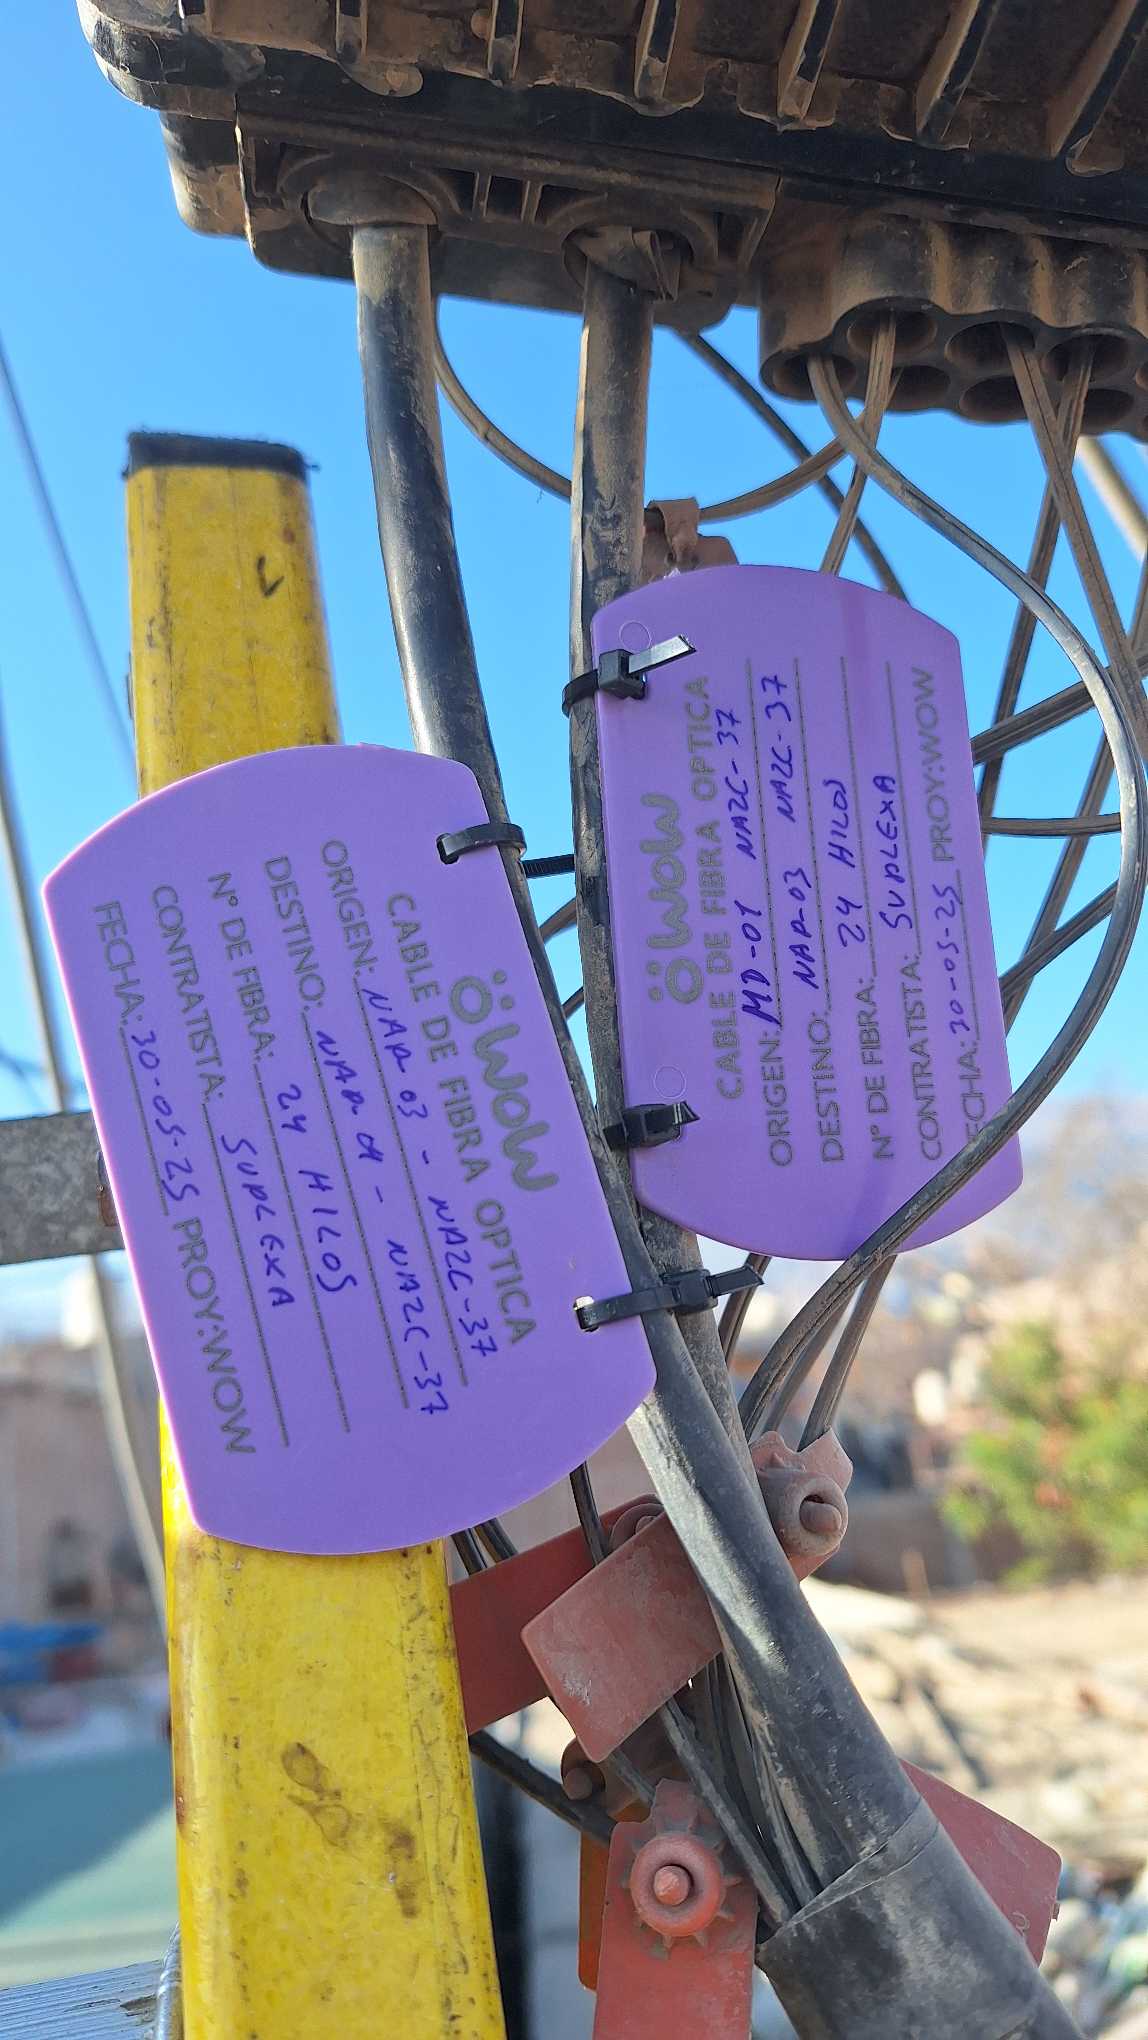 WOW
CABLE DE FIBRA OPTICA
ORIGEN: NAP-03 - NAZC-37
DESTINO: NAP-A - NAZC-37
N° DE FIBRA: 24 HILOS
CONTRATISTA: SUPLEXA
FECHA: 30-05-25 PROY:WOW
WOW
CABLE DE FIBRA OPTICA
ORIGEN: MD-01 NAZC-37
DESTINO: NAP-03 NAZC-37
N° DE FIBRA: 24 HILOS
CONTRATISTA: SUPLEXA
FECHA: 30-05-25 PROY:WOW